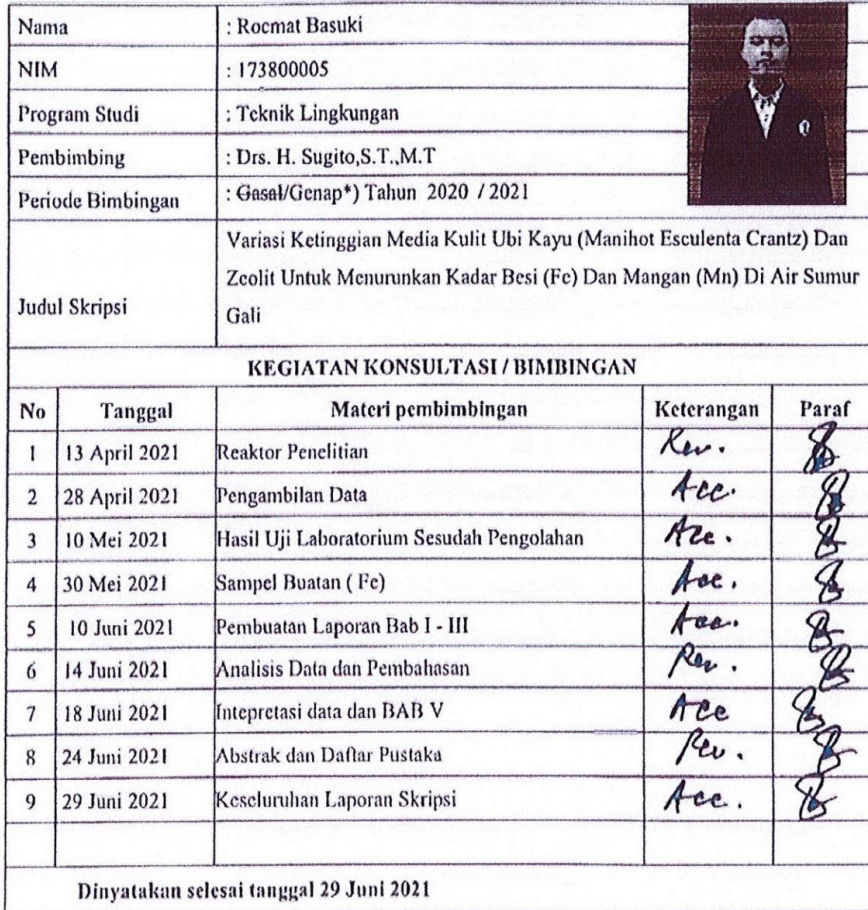 Nama : Rocmat Basuki
NIM : 173800005
Program Studi : Teknik Lingkungan
Pembimbing : Drs. H. Sugito,S.T.,M.T
Periode Bimbingan : Gasal/Genap*) Tahun 2020 / 2021
Judul Skripsi
Variasi Ketinggian Media Kulit Ubi Kayu (Manihot Esculenta Crantz) Dan
Zeolit Untuk Menurunkan Kadar Besi (Fe) Dan Mangan (Mn) Di Air Sumur
Gali
KEGIATAN KONSULTASI / BIMBINGAN
No Tanggal Materi pembimbingan Keterangan Paraf
1 13 April 2021 Reaktor Penelitian Rev.
2 28 April 2021 Pengambilan Data Acc.
3 10 Mei 2021 Hasil Uji Laboratorium Sesudah Pengolahan Acc.
4 30 Mei 2021 Sampel Buatan ( Fe) Acc.
5 10 Juni 2021 Pembuatan Laporan Bab I - III Acc.
6 14 Juni 2021 Analisis Data dan Pembahasan Rev.
7 18 Juni 2021 Intepretasi data dan BAB V Acc
8 24 Juni 2021 Abstrak dan Daftar Pustaka Rev.
9 29 Juni 2021 Keseluruhan Laporan Skripsi Acc.
Dinyatakan selesai tanggal 29 Juni 2021